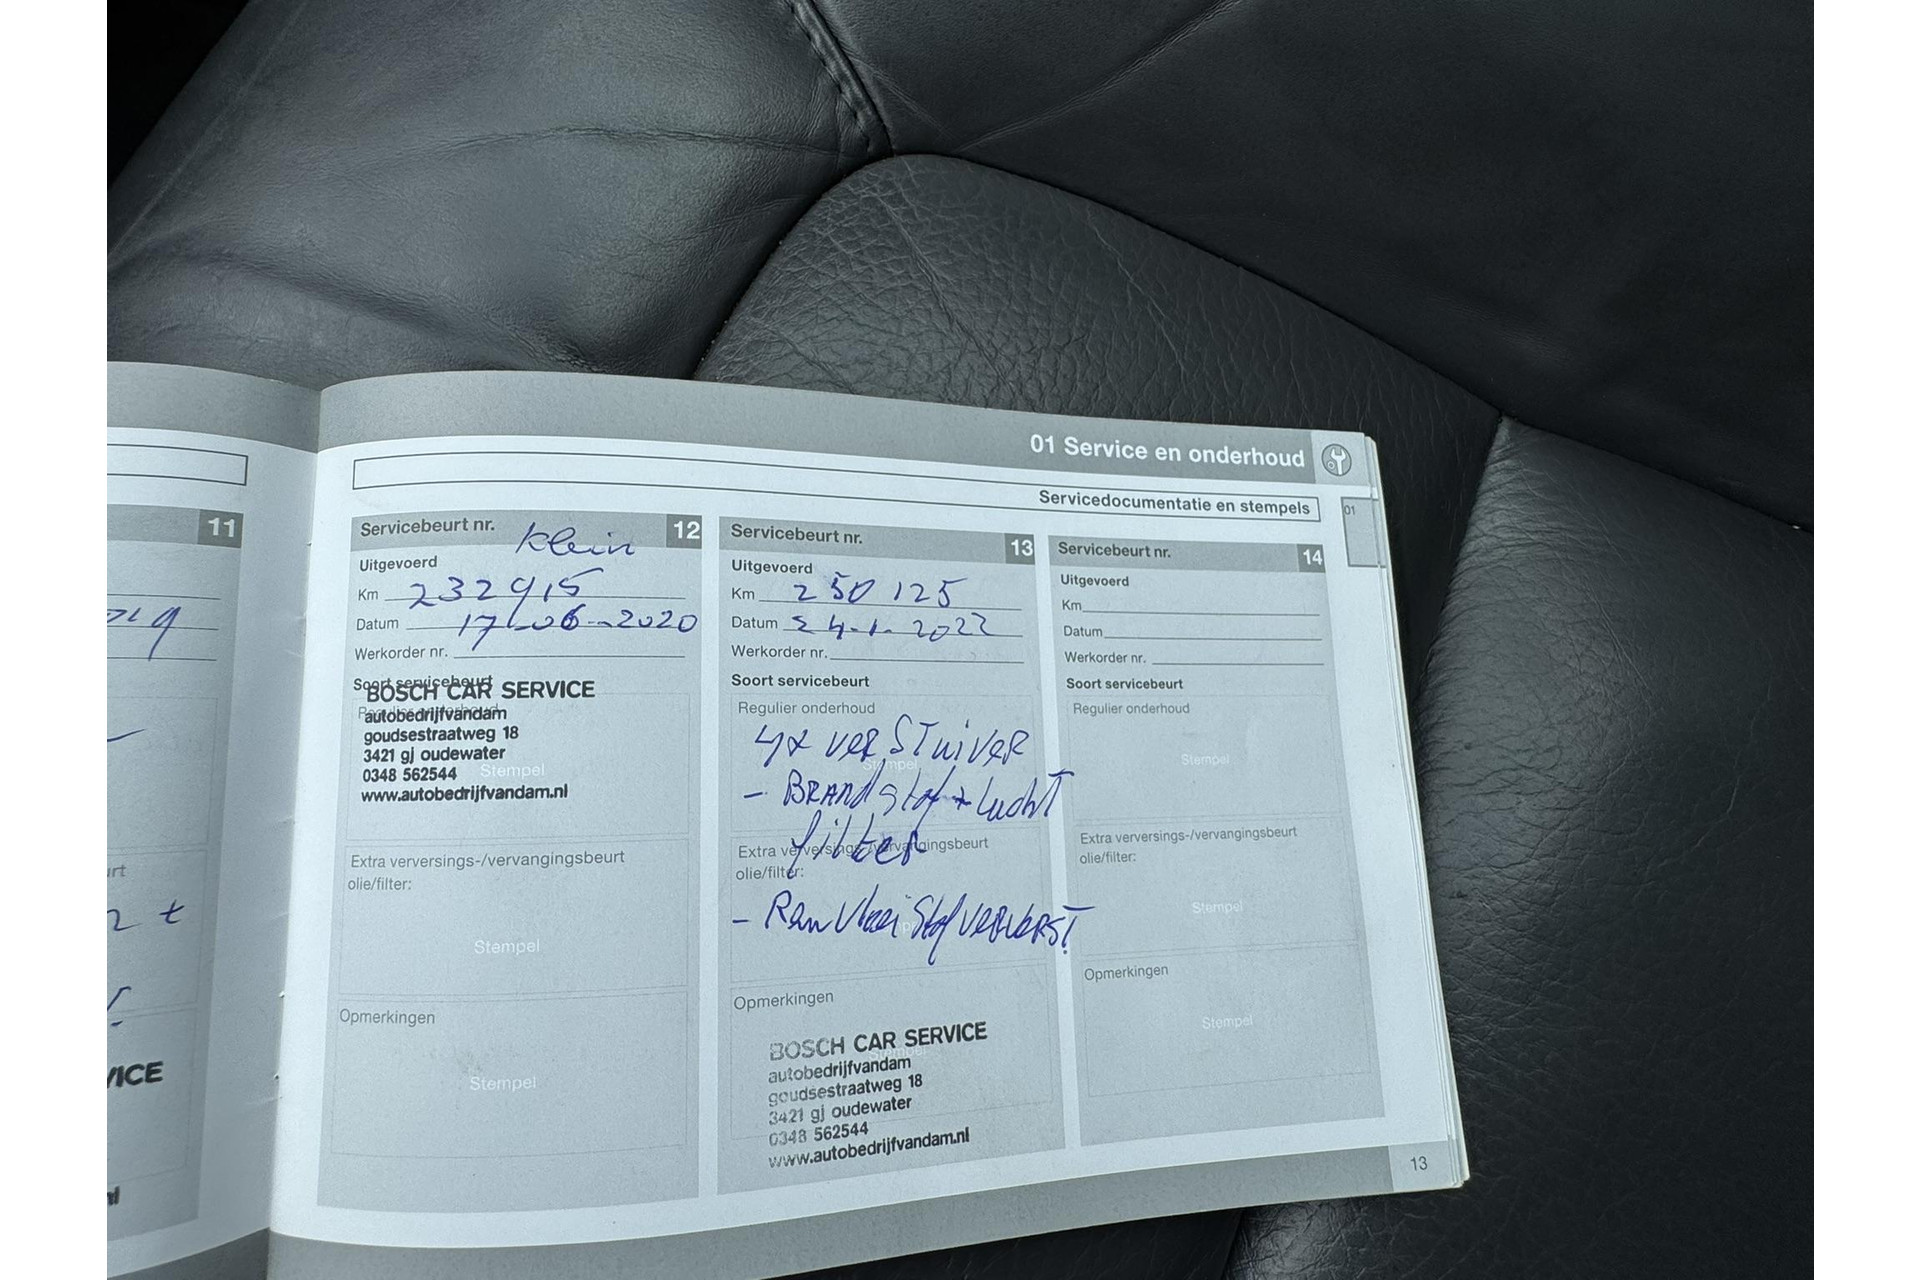 01 Service en onderhoud
Servicedocumentatie en stempels
01
11
2019
urt
2 t
VICE
nl
Servicebeurt nr. 12
klein
Uitgevoerd
Km 232915
Datum 17-06-2020
Werkorder nr.
Soort servicebeurt
BOSCH CAR SERVICE
Regulier onderhoud
autobedrijfvandam
goudsestraatweg 18
3421 gj oudewater
0348 562544
Stempel
www.autobedrijfvandam.nl
Extra verversings-/vervangingsbeurt
olie/filter:
Stempel
Opmerkingen
Stempel
Servicebeurt nr. 13
Uitgevoerd
Km 250125
Datum 24-1-2022
Werkorder nr.
Soort servicebeurt
Regulier onderhoud
4x verstuiver
Stempel
- Brandstof + lucht
filter
Extra verversings-/vervangingsbeurt
olie/filter:
- Remvloeistof ververst
Opmerkingen
BOSCH CAR SERVICE
Stempel
autobedrijfvandam
goudsestraatweg 18
3421 gj oudewater
0348 562544
www.autobedrijfvandam.nl
Servicebeurt nr. 14
Uitgevoerd
Km
Datum
Werkorder nr.
Soort servicebeurt
Regulier onderhoud
Stempel
Extra verversings-/vervangingsbeurt
olie/filter:
Stempel
Opmerkingen
Stempel
13